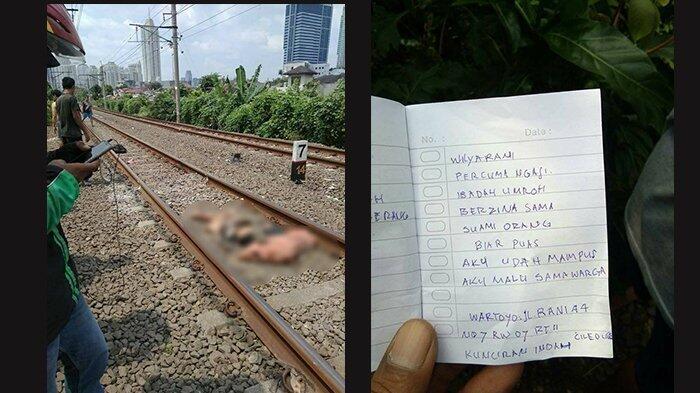 7
No. : Date :
PERCUMA NGAJI.
IBADAH UMROH
BERZINA SAMA
SUAMI ORANG
BIAR PUAS
AKU UDAH MAMPUS
AKU MALU SAMA WARGA
WARTOYO. JL RANI A4
NO 7 RW 07 RT 11
KUNCIRAN INDAH